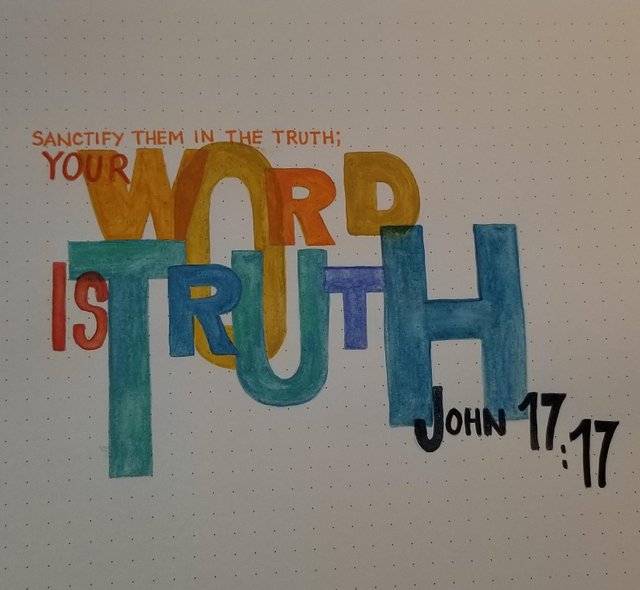 SANCTIFY THEM IN THE TRUTH;
YOUR WORD
IS TRUTH
JOHN 17:17